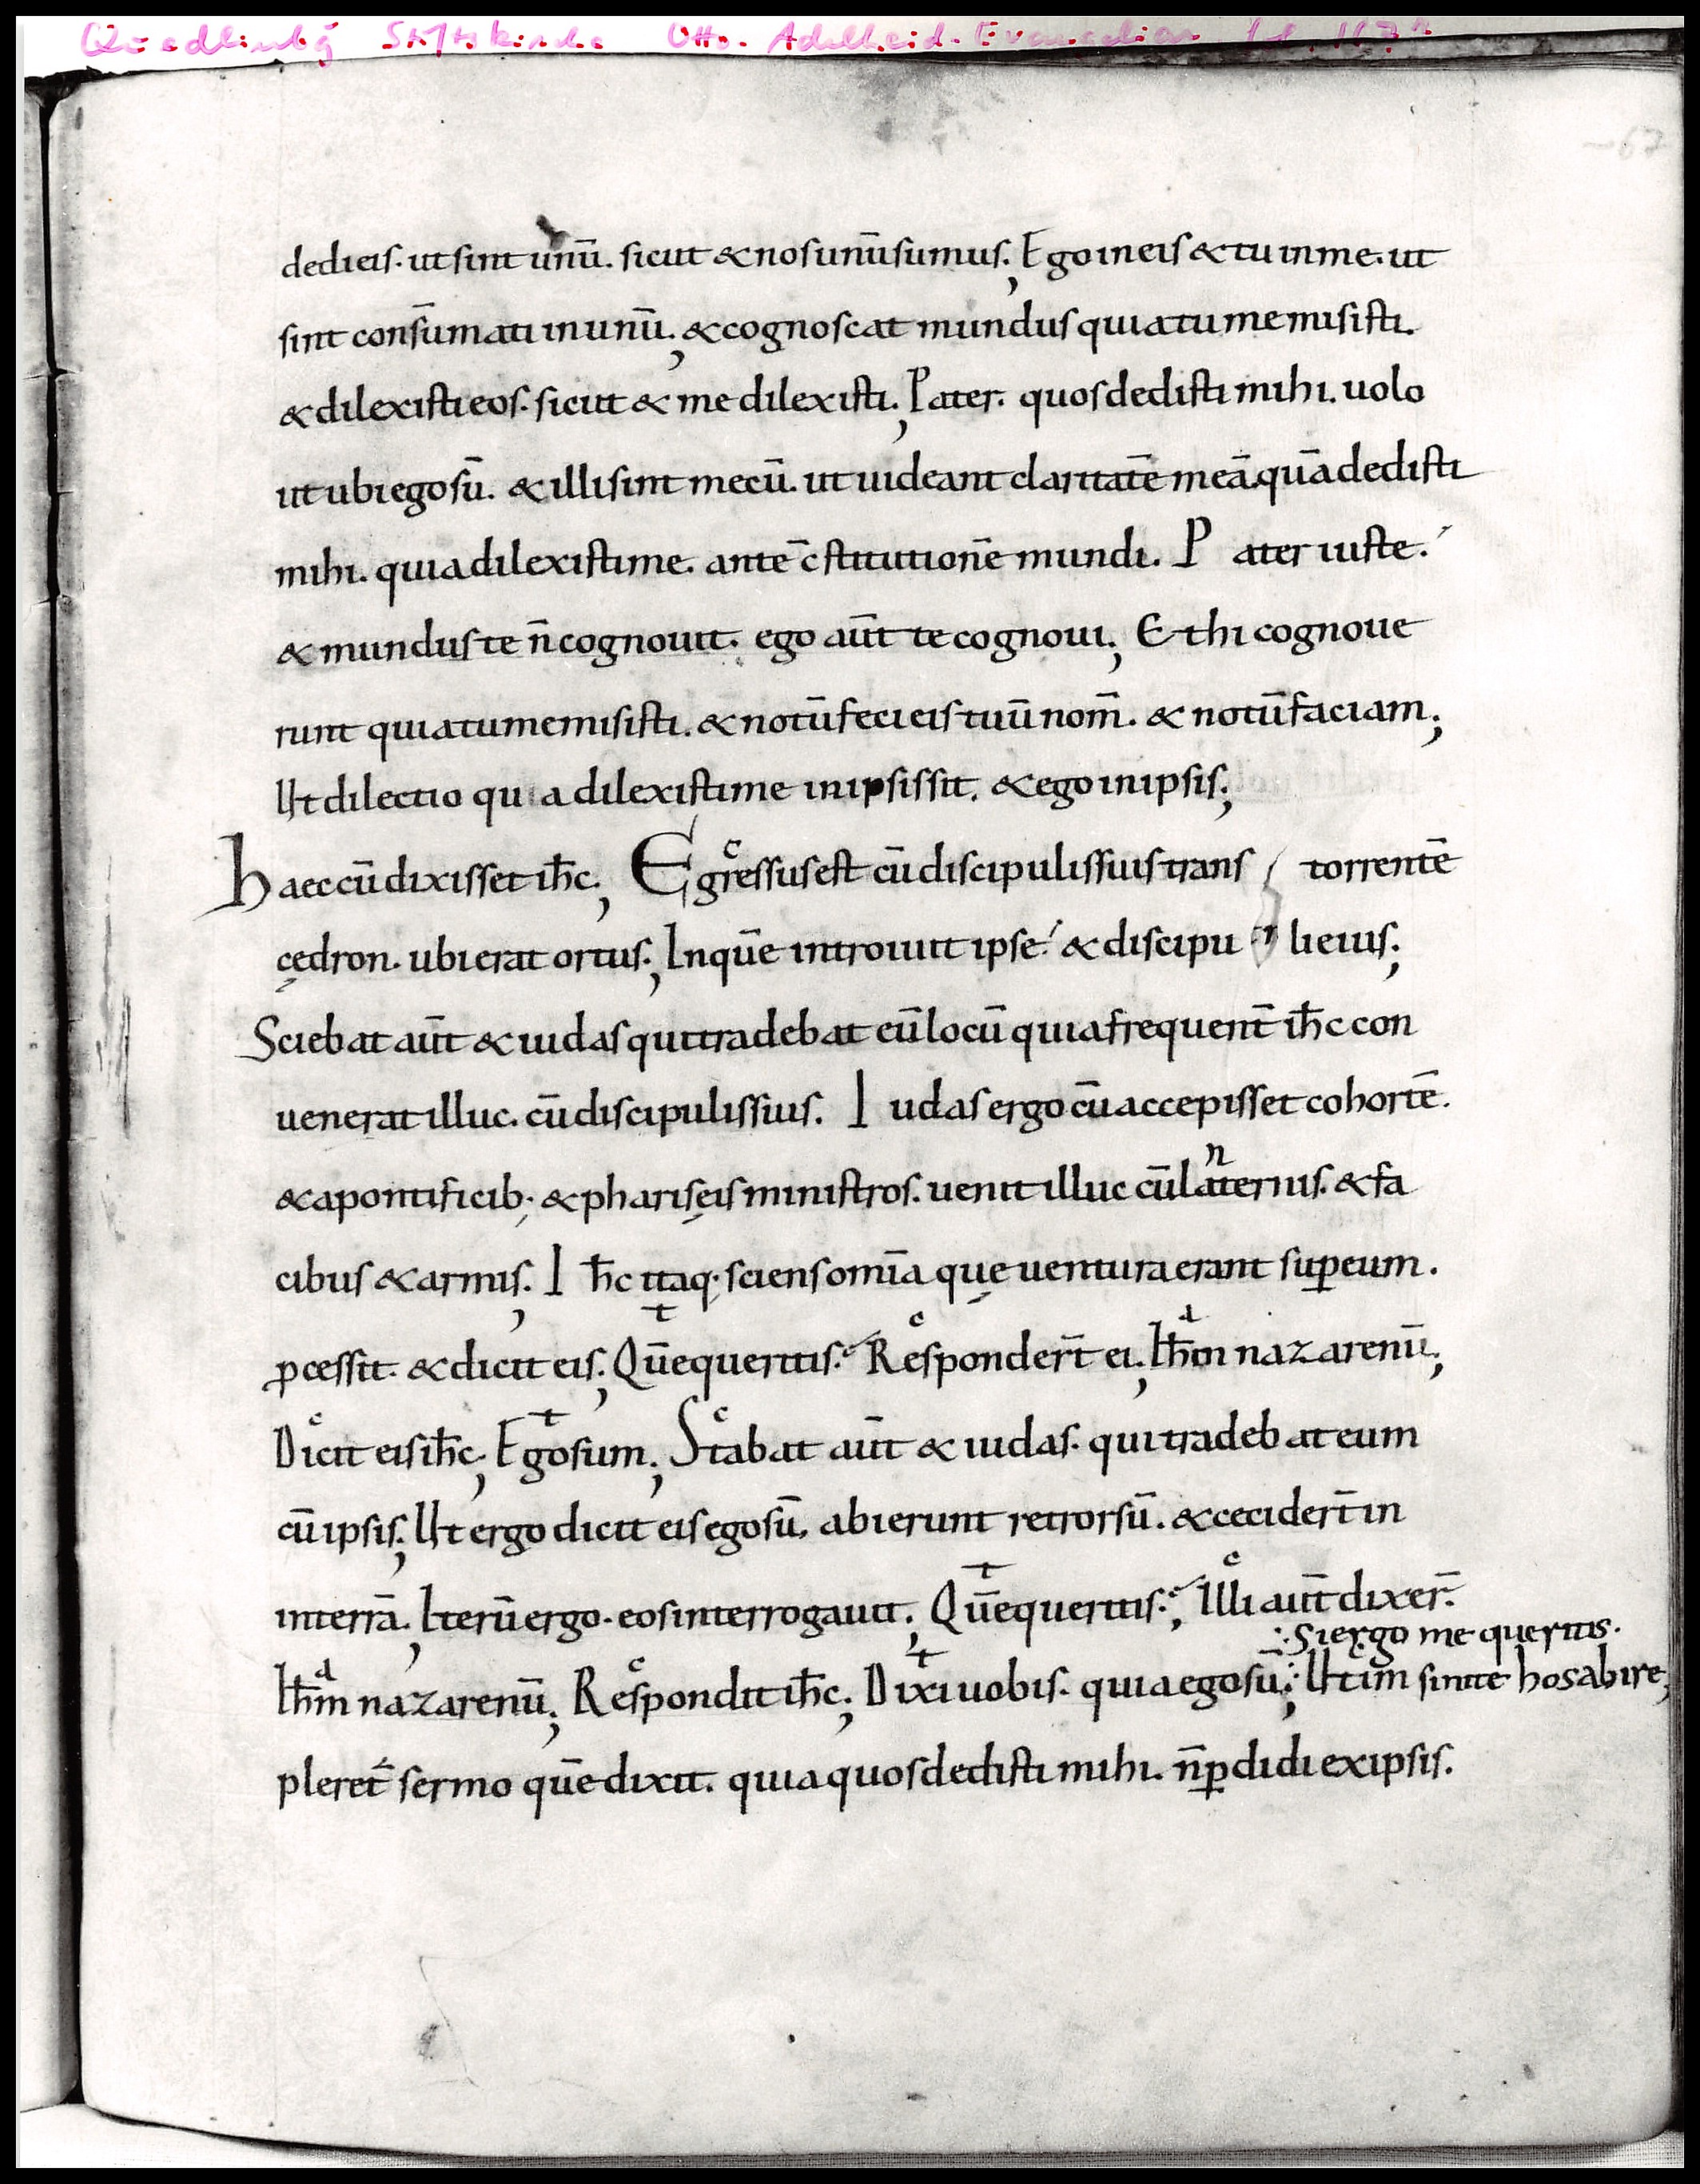 Quedlinbg Stiftskirche Otto-Adelheid-Evangeliar fol. 167r
67
dedi eis. ut sint unū. sicut & nos unū sumus; Ego in eis & tu in me. ut
sint consūmati in unū; & cognoscat mundus quia tu me misisti.
& dilexisti eos. sicut & me dilexisti; Pater. quos dedisti mihi. uolo
ut ubi ego sū. & illi sint mecū. ut uideant claritatē meā. quā dedisti
mihi. quia dilexisti me. ante c̄stitutionē mundi. P ater iuste.
& mundus te n̄ cognouit. ego aūt te cognoui; Et hi cognoue
runt quia tu me misisti. & notū feci eis tuū nom̄. & notū faciam;
Ut dilectio qu a dilexisti me in ipsis sit. & ego in ipsis;
Haec cū dixisset ih̄c; Egressus est cū discipulis suis trans torrentē
cędron. ubi erat ortus; In quē introiuit ipse & discipu li eius;
Sciebat aūt & iudas qui tradebat eū locū quia frequent̄ ih̄c con
uenerat illuc. cū discipulis suis. I udas ergo cū accepisset cohortē.
& a pontificib; & pharisęis ministros. uenit illuc cū laternis. & fa
n
cibus & armis; I h̄c itaq; sciens omīa quę uentura erant sup̄ eum.
p̄cessit. & dicit eis; Quē queritis. Responder̄t ei; Ih̄m nazarenū;
Dicit eis ih̄c; Ego sum; Stabat aūt & iudas. qui tradebat eum
cū ipsis; Ut ergo dicit eis ego sū, abierunt retrorsū. & cecider̄t in
in terrā; Iterū ergo. eos interrogauit; Quē queritis; Illi aūt dixer̄.
Si ergo me queritis.
Ih̄m nazarenū; Respondit ih̄c; Dixi uobis. quia ego sū; Ut im sinite hos abire;
pleret̄ sermo quē dixit. quia quos dedisti mihi. n̄ p̄didi ex ipsis.